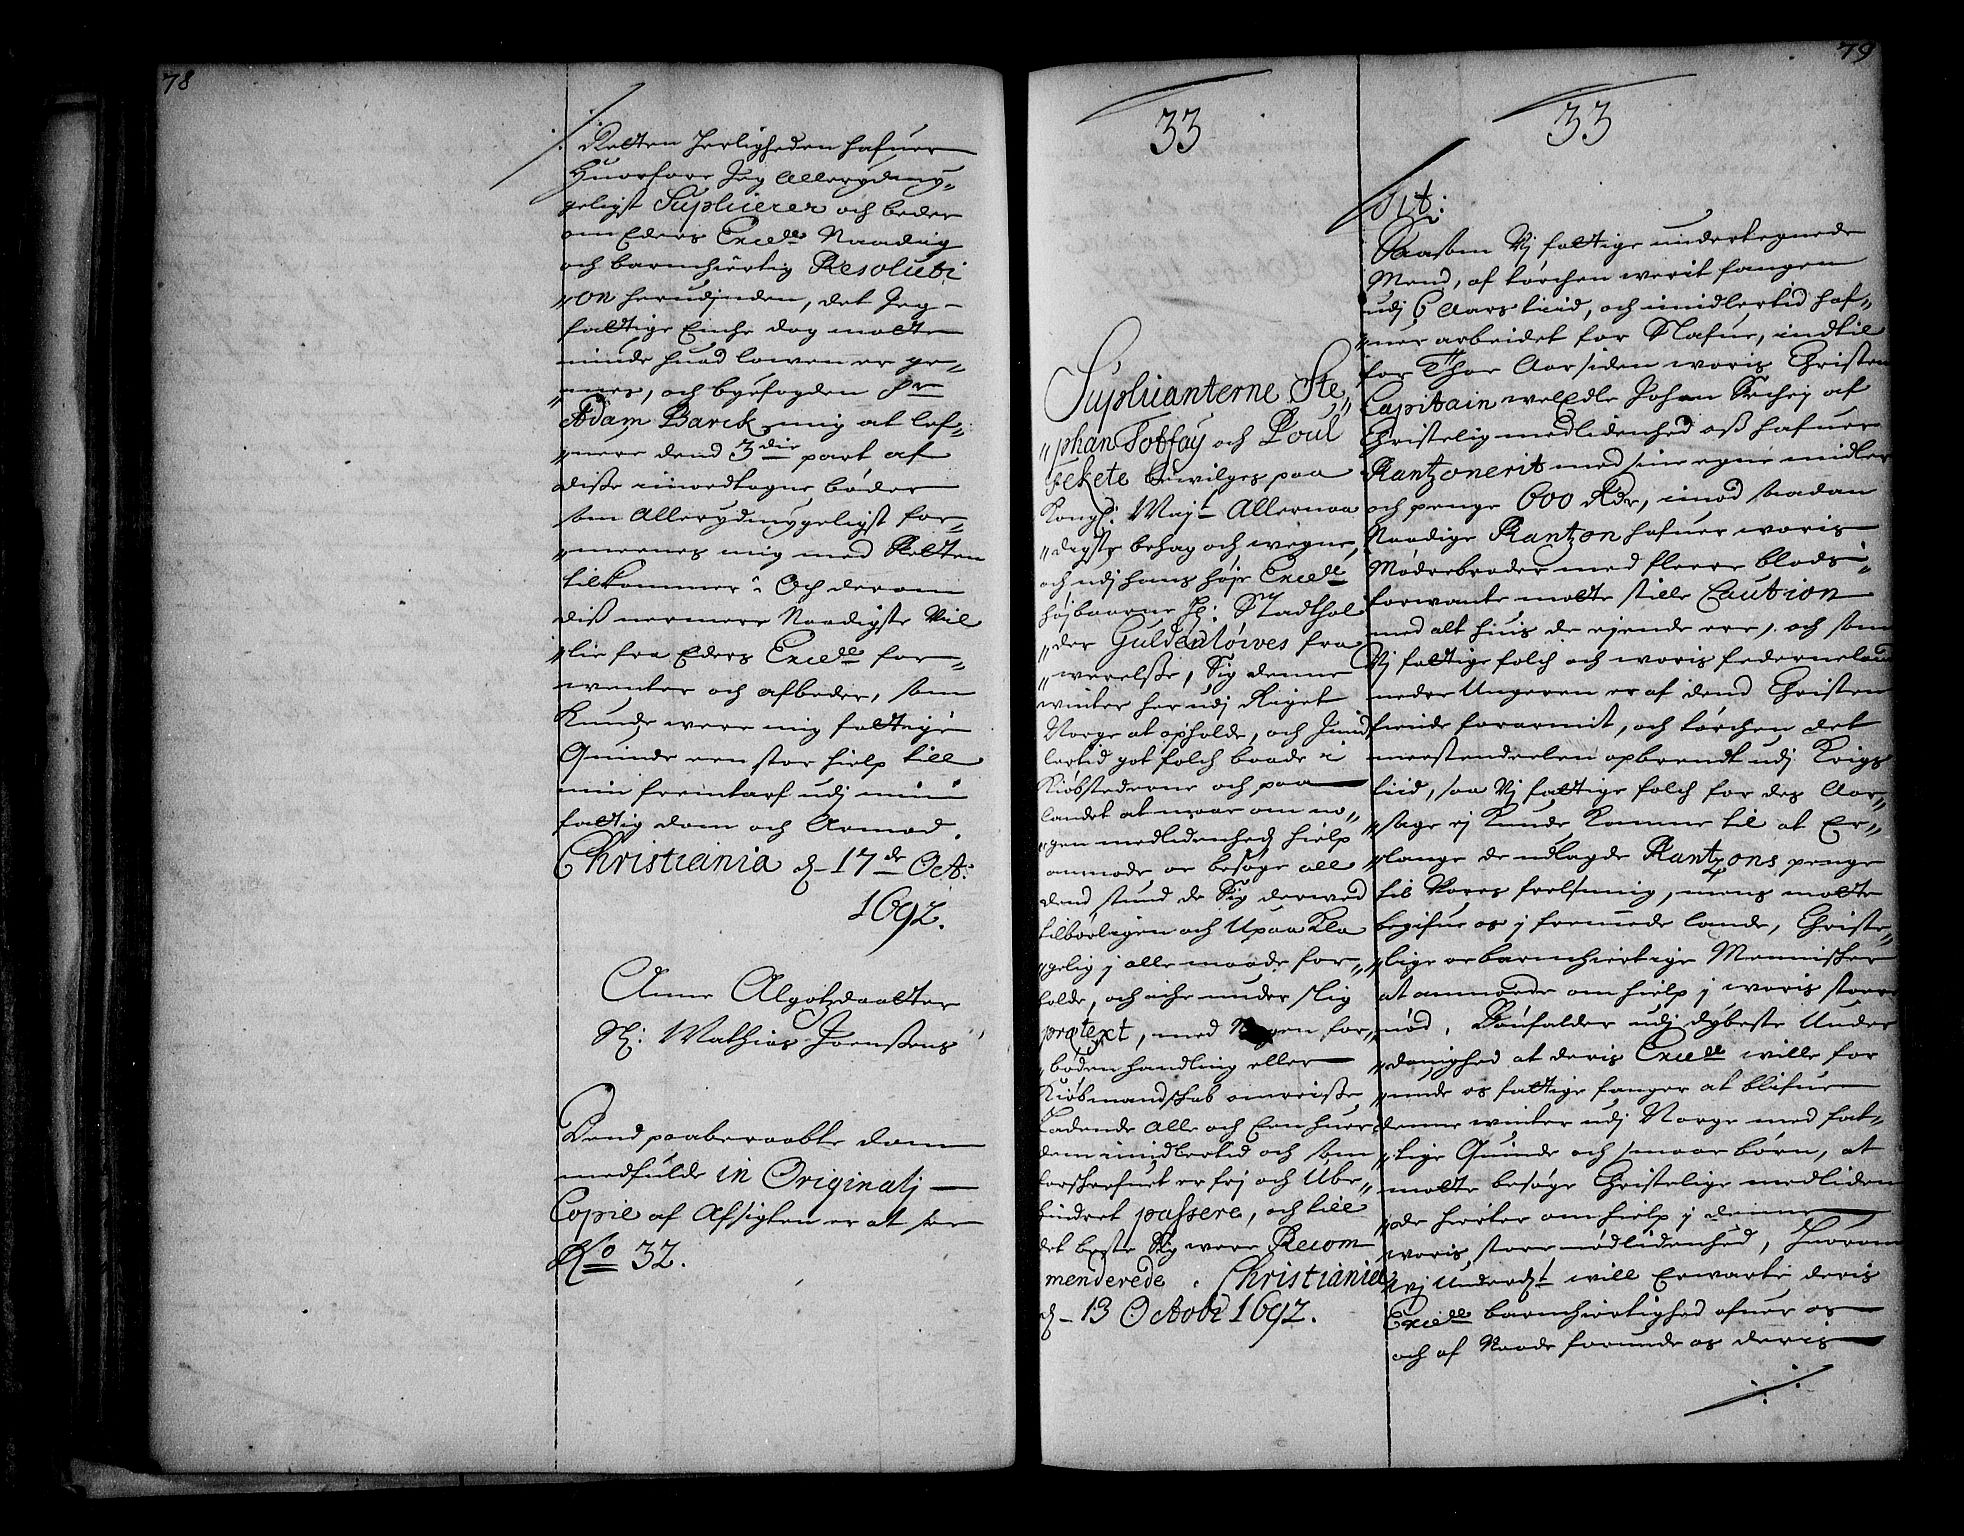 78
Retten herligheden hafuer
Huorfore Jeg Allerydmy„
geligst Supliierer och beder
om Eders Excelle Naadig
och barmhiertig Resoluti
„on herudjnden, det Jeg
fattige Encke dog motte
niude huad lowen er ge„
och byefogden Sr
Adam Barck mig at lef„
„uere dend 3die part af
disse imodtagne bøder
som Allerydmygeligst for„
„meenes mig med Retten
tilkommer: Och derom
diss nermere Naadigste Vil
„lie fra Eders Excelle for„
wenter och afbeder, som
Kunde were mig fattige
Quinde een stor hielp till
min fremtarf udj min
fattigdom och Armod.
Christiania d– 17de Oct:
1692.
Anne Algotzdaatter
Sl: Mathias Joenssens
Dend paaberaabte dom
medfulde in Originalj
Copie af Afsigten er at see
No 32.
79
33
Supliianterne Ste„
„phan Toffay och Poul
Fekete bewilges paa
Kongl: Mayt Allernaa
„digste behag och wegne,
och udj hans høje Excelle
højbaarne Hr: Stadthol
„der Guldenløwes fra
„werelsse, Sig denne
winter her udj Riget
Norge at opholde, och Jmid
lertid got folch baade i
Kiøbstederne och paa
landet at maa om no„
„gen medlidenheds hielp
anmode oc besøge all
dend stund de Sig derwed
tilbørligen och Upaakla
„gelig j alle maade for„
holde, och iche under slig
prætext, med Nogen for„
„bøden handling eller
Kiøbmandschab omreisse
Ladende Alle och Een huer
dem imidlertid och som
forschrefuet er frj och Ube„
hindret passere, och till
det beste Sig were Recom
menderede. Christiania
d– 13 Octobr 1692.
33
Tit:
Saasom Vj fattige undertegnede
Mend, af tørchen werit fangen
udj 6 Aars tiid, och imidlertid haf„
„uer arbeidet for Slafue, indtil
for Thoe Aar siden woris Christen
Capitain welEdle Johan af
Christelig medlidenhed oss hafuer
Rantzonerit med sine egne midler
och penge 600 Rdr, imod saadan
Naadige Rantzon hafuer woris
Mødrebroder med fleere blods„
forwante motte stille Caution
med alt huis de ejende ere, och som
Vj fattige folch och woris federneland
neder Ungeren er af dend Christen
fiende forarmit, och tørchen det
meestendeelen opbrendt udj Krigs
tiid, saa Vj fattige folch for des Aar„
„sage ej Kunde Komme til at Er„
„lange de udlagde Rantzons penge
til Vores frelsning, mens motte
begifue os j fremmede lande, Christe„
„lige oc barmhiertige Mennischer
at anmoede om hielp j woris store
nød, Bønfalder udj dybeste Under
„danighed at deris Excelle wille for
„unde os fattige fanger at blifue
denne winter udj Norge med fat„
„tige Quinde och smaae børn, at
motte besøge Christelige medliden
„de hierter om hielp j denne
woris store nødlidenhed, Huorom
wj Underdt will Erwarte deris
Excelle barmhiertighed ofuer os
och af Naade forunde os deris